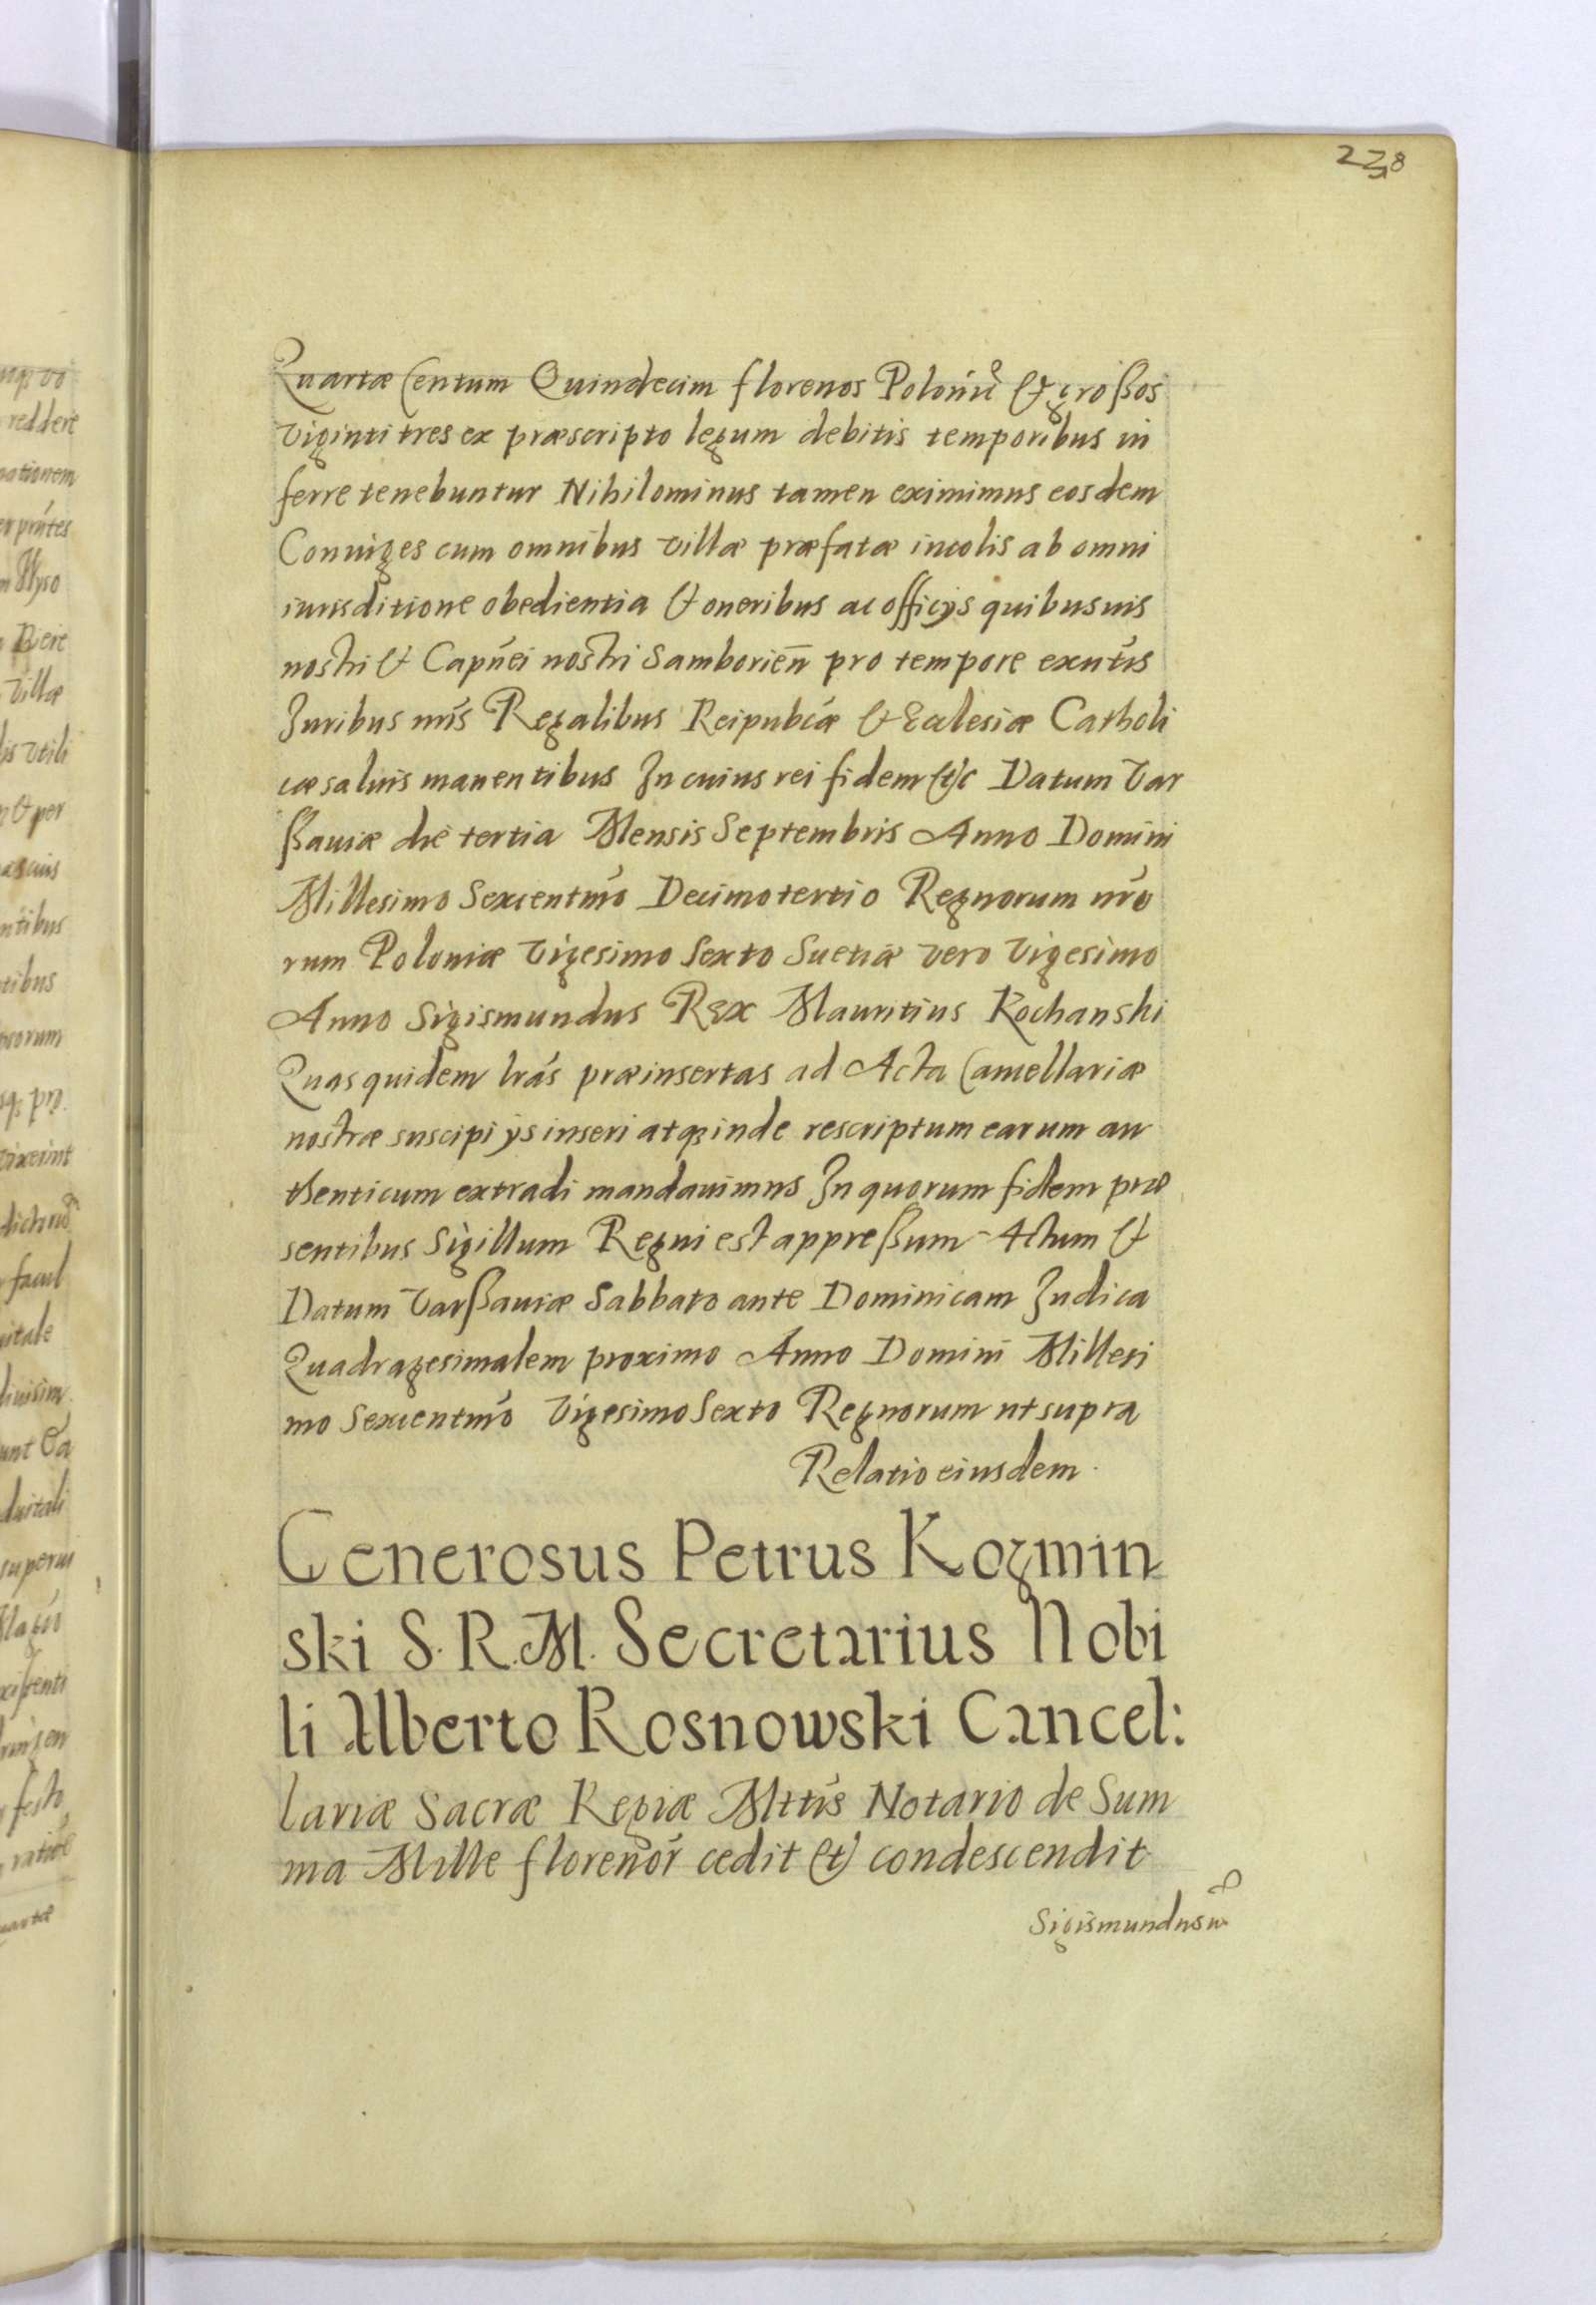 238
Quartæ Centum Quindecim florenos Polonñ & großos
viginti tres ex præscripto legum debitis temporibus in
ferre tenebuntur Nihilominus tamen eximimus eosdem
Coniuges cum omnibus villæ præfatæ incolis ab omni
iurisditione obedientia & oneribus ac officijs quibusuis
nostri & Capñei nostri Samborien̄ pro tempore exñtis
Juribus nr̃is Regalibus Reipubćæ & Ecclesiæ Catholi
cæ saluis manentibus In cuius rei fidem &c Datum Var
ßauiæ die tertia Mensis Septembris Anno Domini
Millesimo Sexcentmo Decimotertio Regnorum nr̃o
rum Poloniæ Vigesimo Sexto Suetiæ vero Vigesimo
Anno Sigismundus Rex Mauritius Kochanski
Quas quidem lrás præinsertas ad Acta Cancellariæ
nostræ suscipi ijs inseri atq́ inde rescriptum earum au
thenticum extradi mandauimus In quorum fidem præ
sentibus Sigillum Regni est appreßum Actum &
Datum Varßauiæ Sabbato ante Dominicam Judica
Quadragesimalem proximo Anno Domini Millesi
mo Sexcentmo Vigesimo Sexto Regnorum ut supra
Relatio eiusdem.
Generosus Petrus Kozmin
ski S. R. M. Secretarius Nobi
li Alberto Rosnowski Cancel:
lariæ Sacræ Regiæ Mttis Notario de Sum
ma Mille florenor̃ cedit & condescendit
Sigismundus